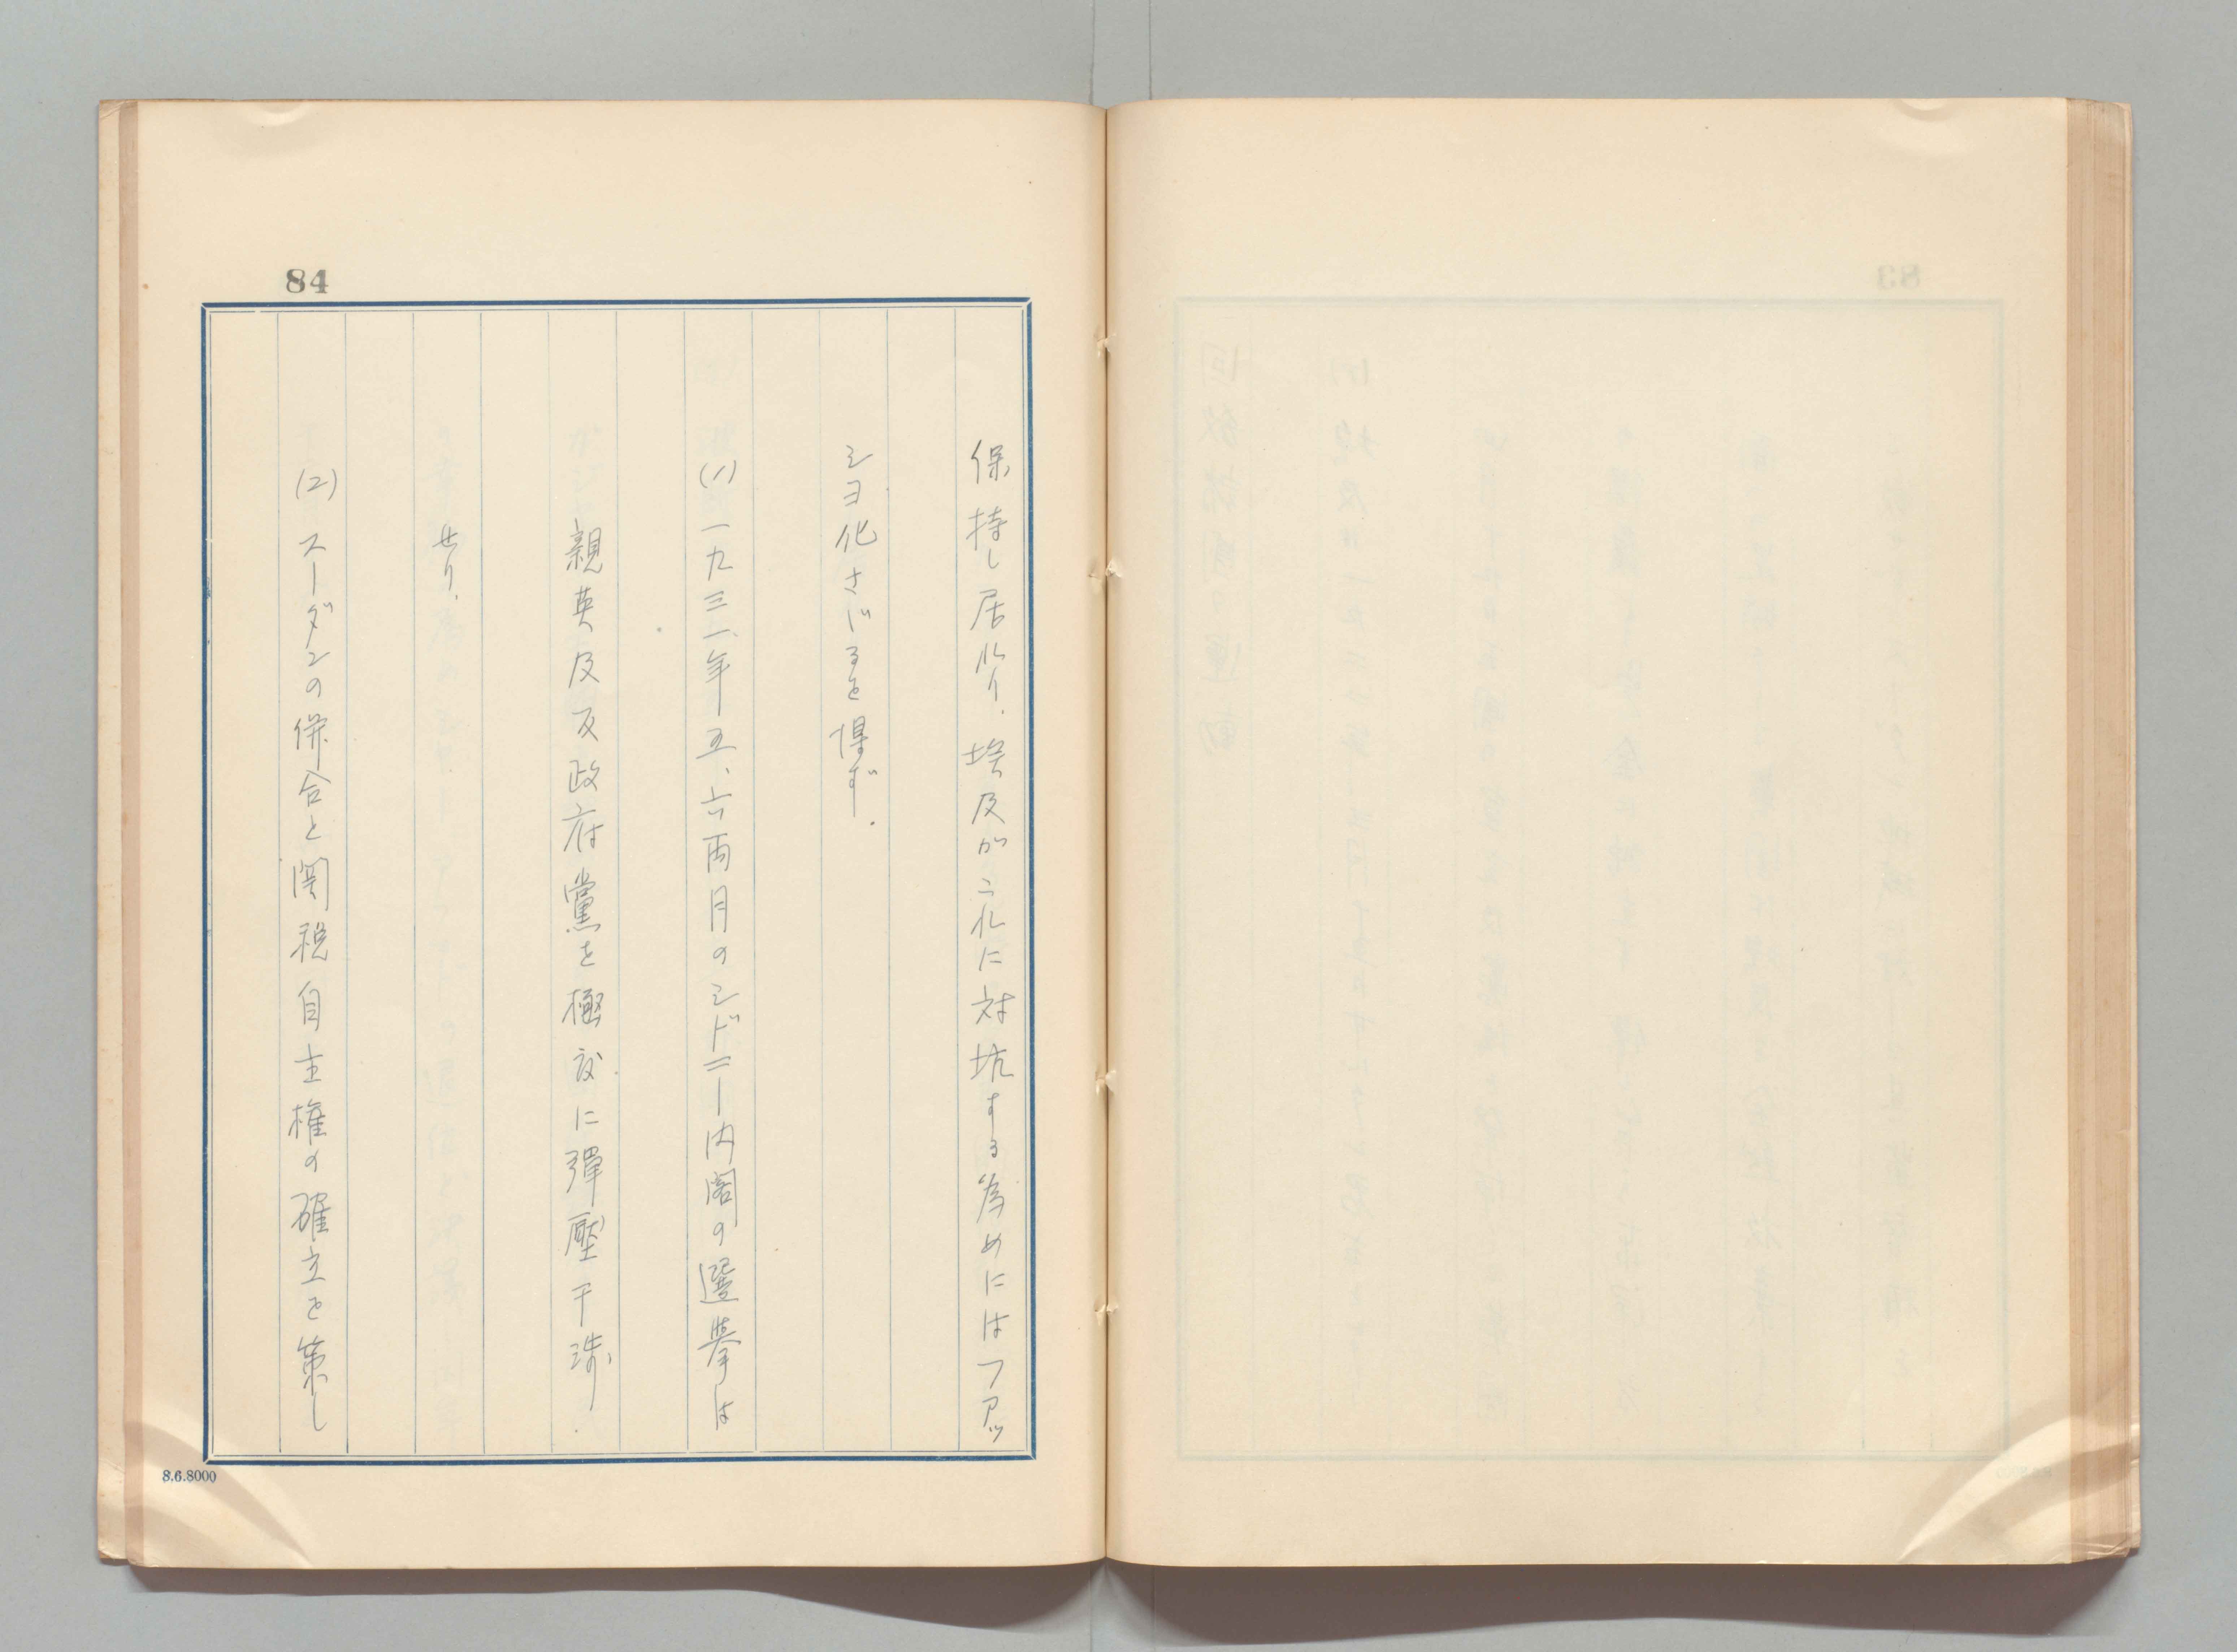 84
保持し居れり．埃及が之れに対坑する為めにはファッ
シヨ化さゞるを得ず．
(1) 一九三一年五、六両月のシドニー内閣の選挙は
親英及反政府黨を極度に彈壓干渉．
せり．
(2) スーダンの併合と関税自主権の確立を策し
8.6.8000